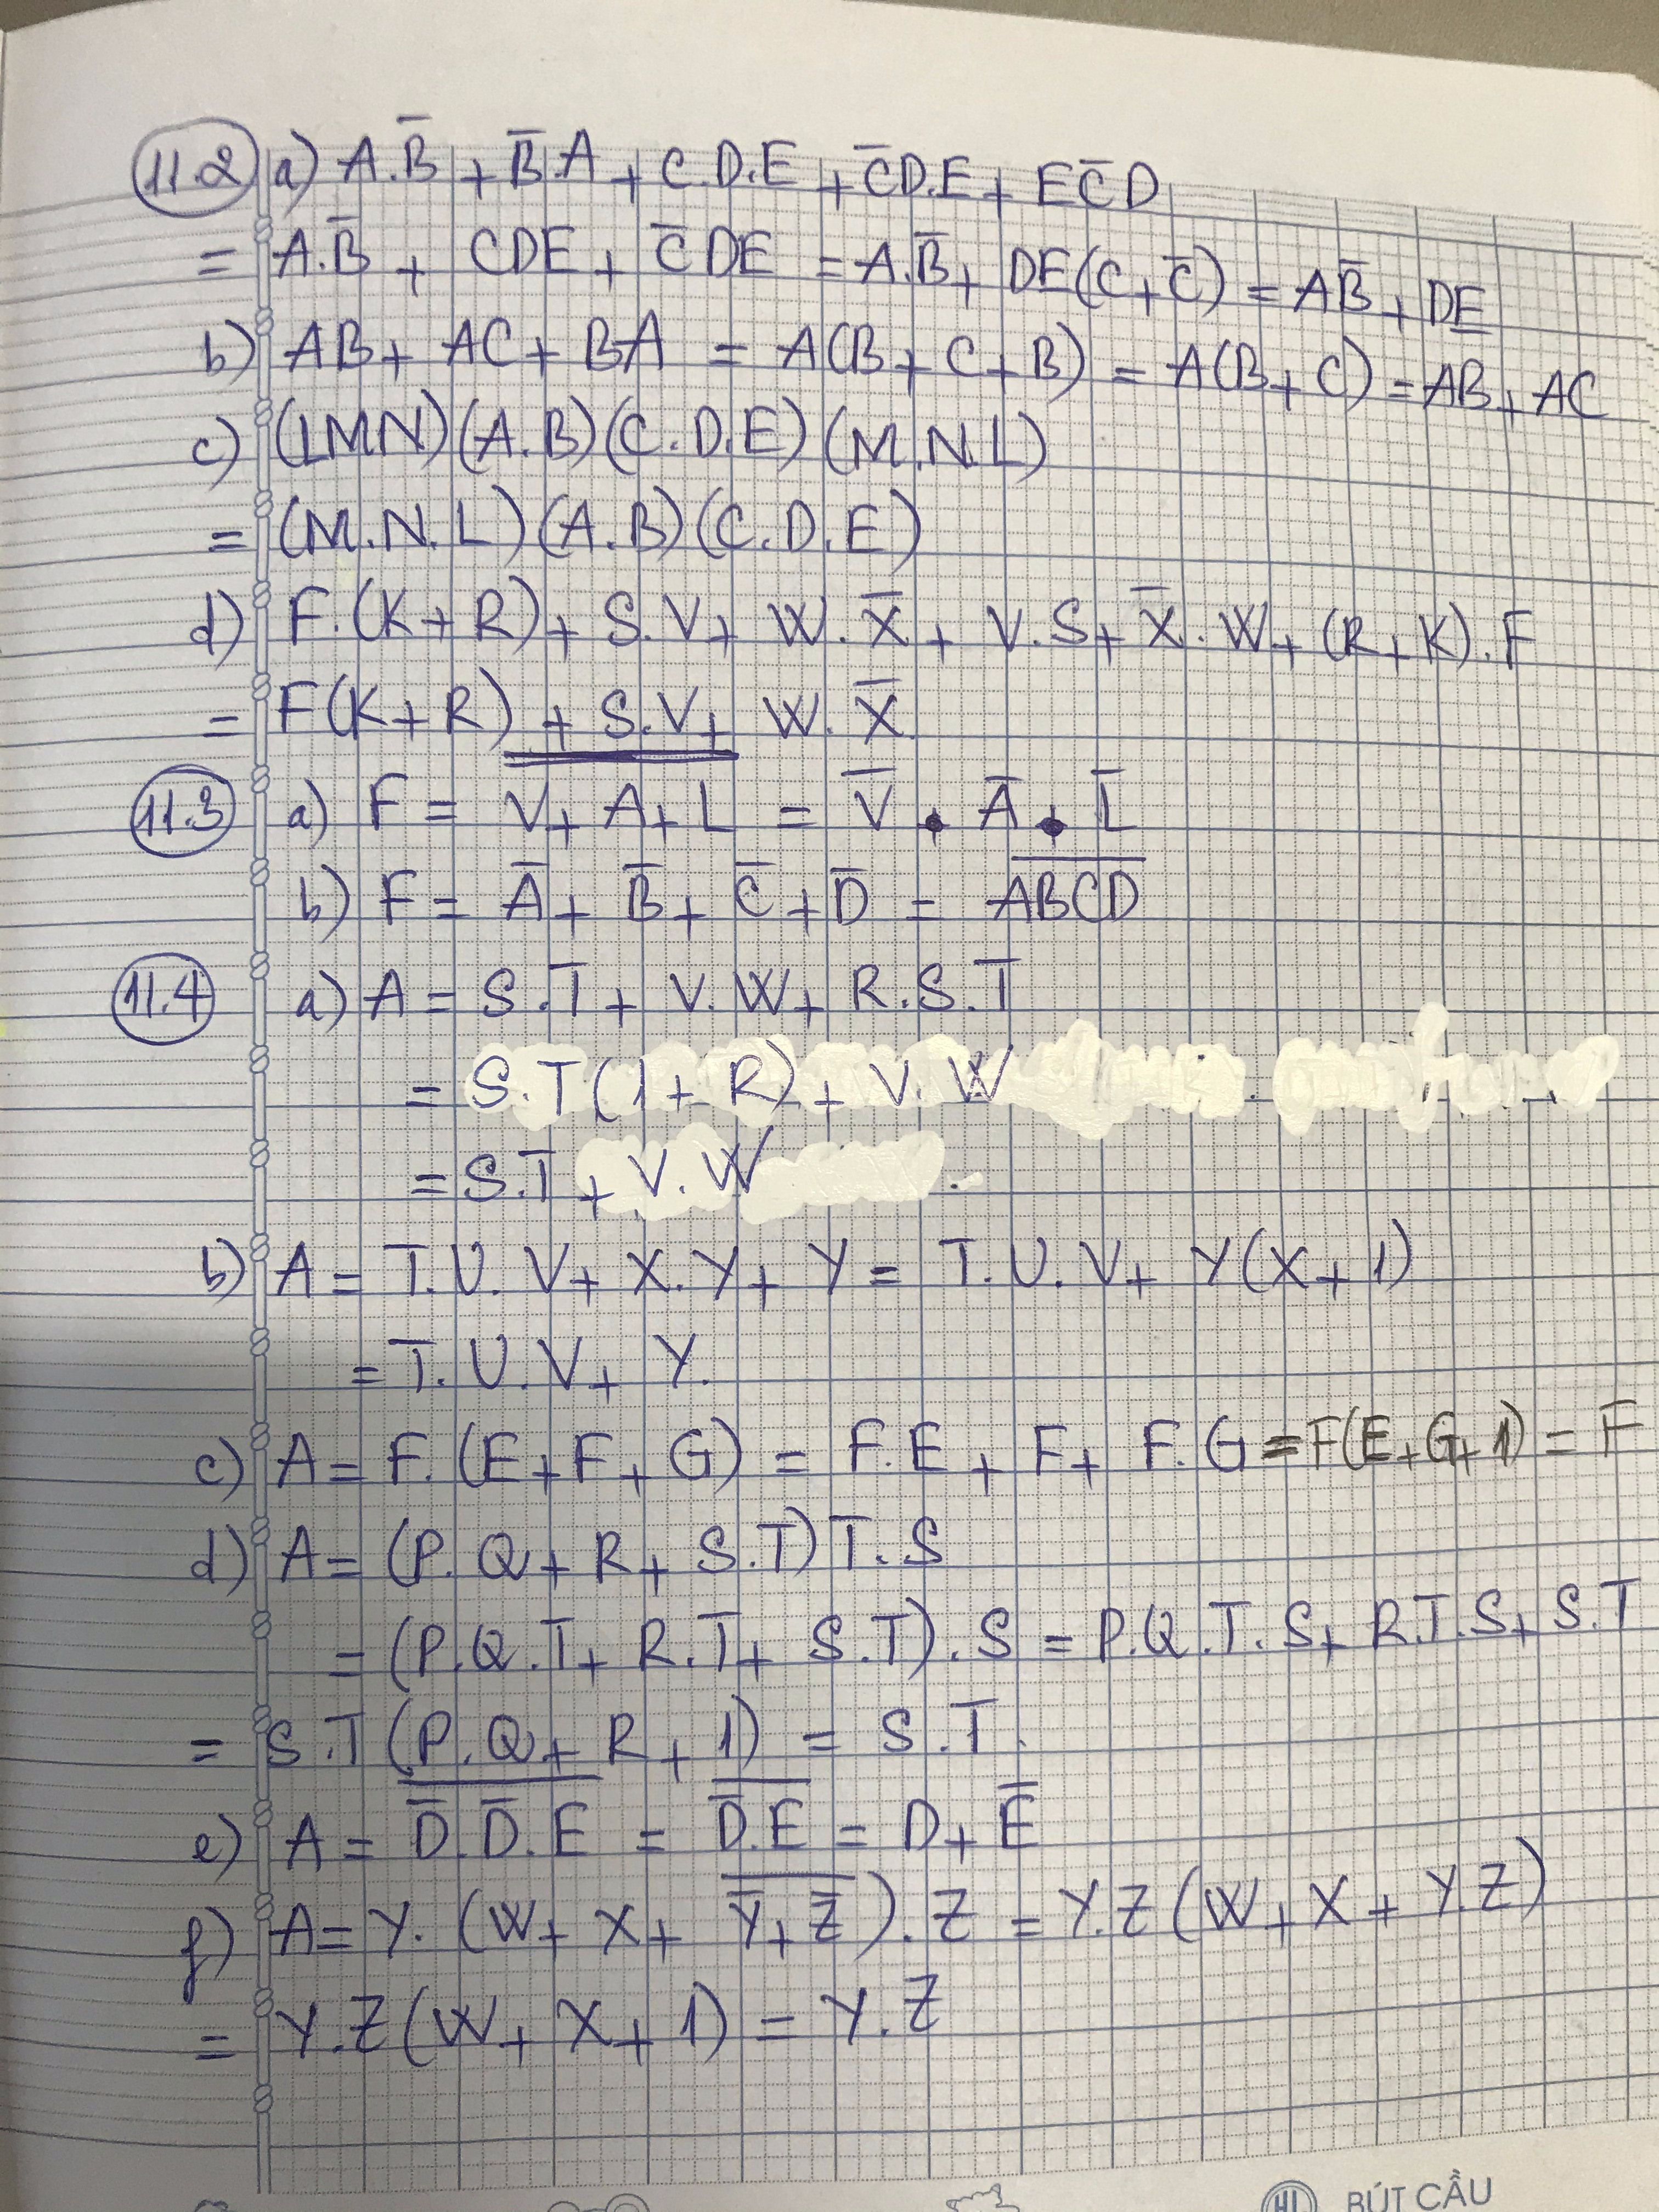 11.2 a) A.B̅ + B̅.A + C.D.E + C̅D.E + EC̅D
= A.B̅ + CDE + C̅DE = A.B̅ + DE(C+C̅) = AB̅ + DE
b) AB + AC + BA = A(B + C + B) = A(B + C) = AB + AC
c) (LMN)(A.B)(C.D.E)(M.N.L)
= (M.N.L)(A.B)(C.D.E)
d) F.(K+R) + S.V + W.X̅ + V.S + X̅.W + (R+K).F
= F(K+R) + S.V + W.X̅
11.3 a) F = \overline{V + A + L} = V̅ . A̅ . L̅
b) F = A̅ + B̅ + C̅ + D̅ = \overline{ABCD}
11.4 a) A = S.T + V.W + R.S.T
= S.T(1 + R) + V.W
= S.T + V.W
b) A = T.U.V + X.Y + Y = T.U.V + Y(X + 1)
= T.U.V + Y.
c) A = F.(E + F + G) = F.E + F + F.G = F(E+G+1) = F
d) A = (P.Q + R + S.T)T.S
= (P.Q.T + R.T + S.T).S = P.Q.T.S + R.T.S + S.T
= S.T(P.Q + R + 1) = S.T.
e) A = \overline{D̅.D̅.E} = \overline{D̅.E} = D + E̅
f) A = Y.(W + X + \overline{Y̅ + Z̅}).Z = Y.Z(W + X + Y.Z)
= Y.Z(W + X + 1) = Y.Z
BÚT CẦU